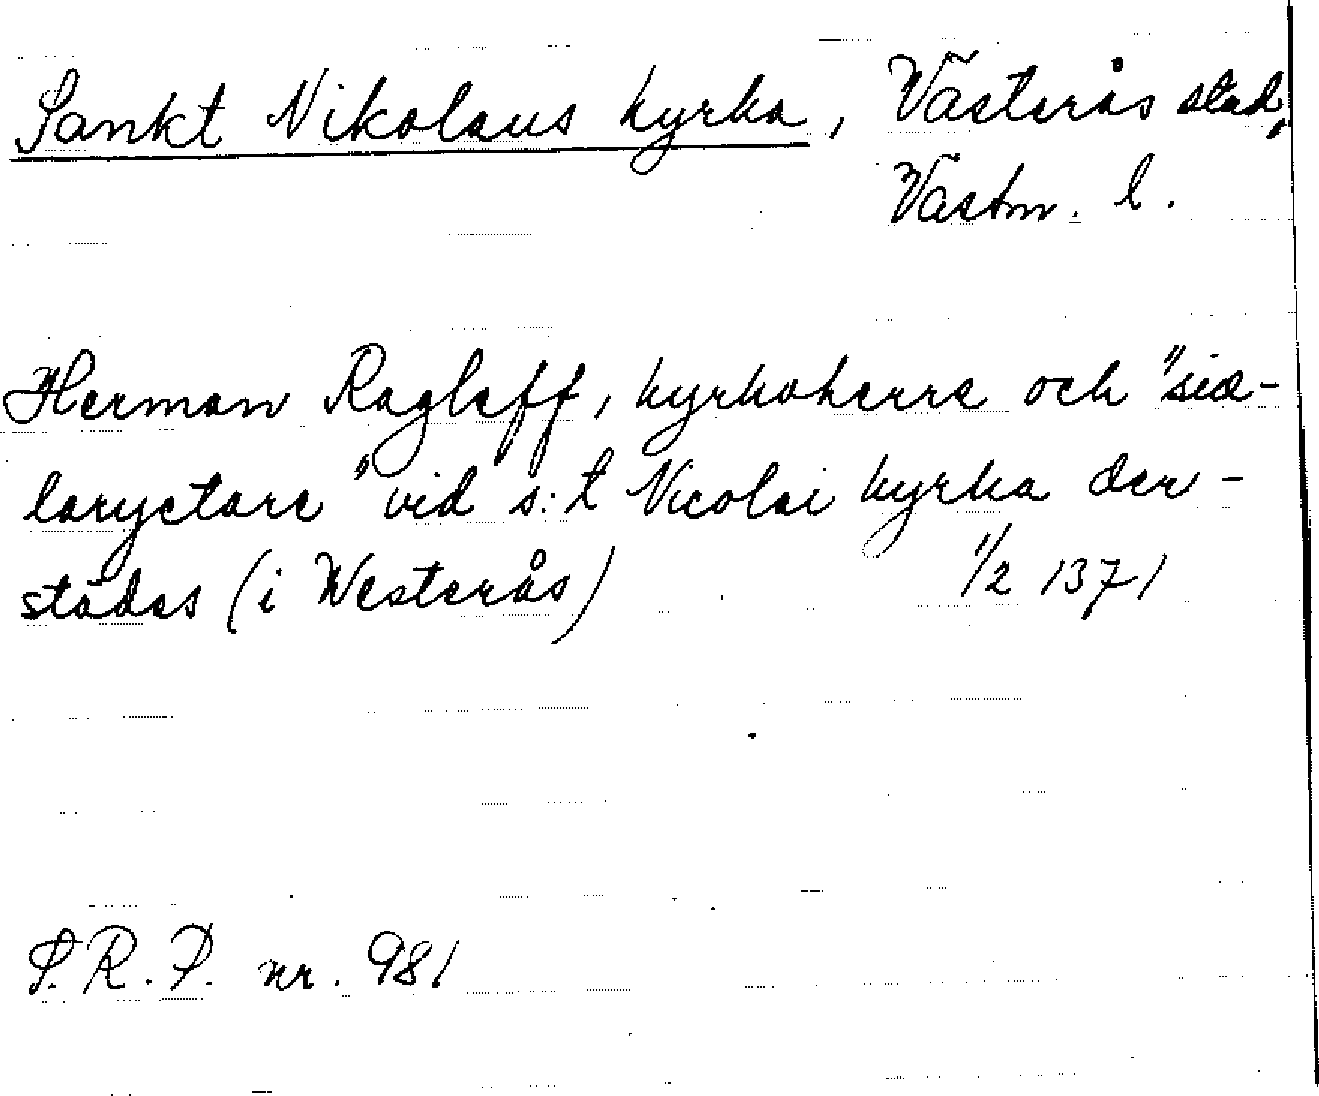 Sankt Nikolaus kyrka, Västerås stad,
Västm. l.
Herman Ragleff, kyrkoherre och "siæ-
laryctare" vid s:t Nicolai kyrka der-
städes (i Westerås) 1/2 1371
S.R.P. nr. 981